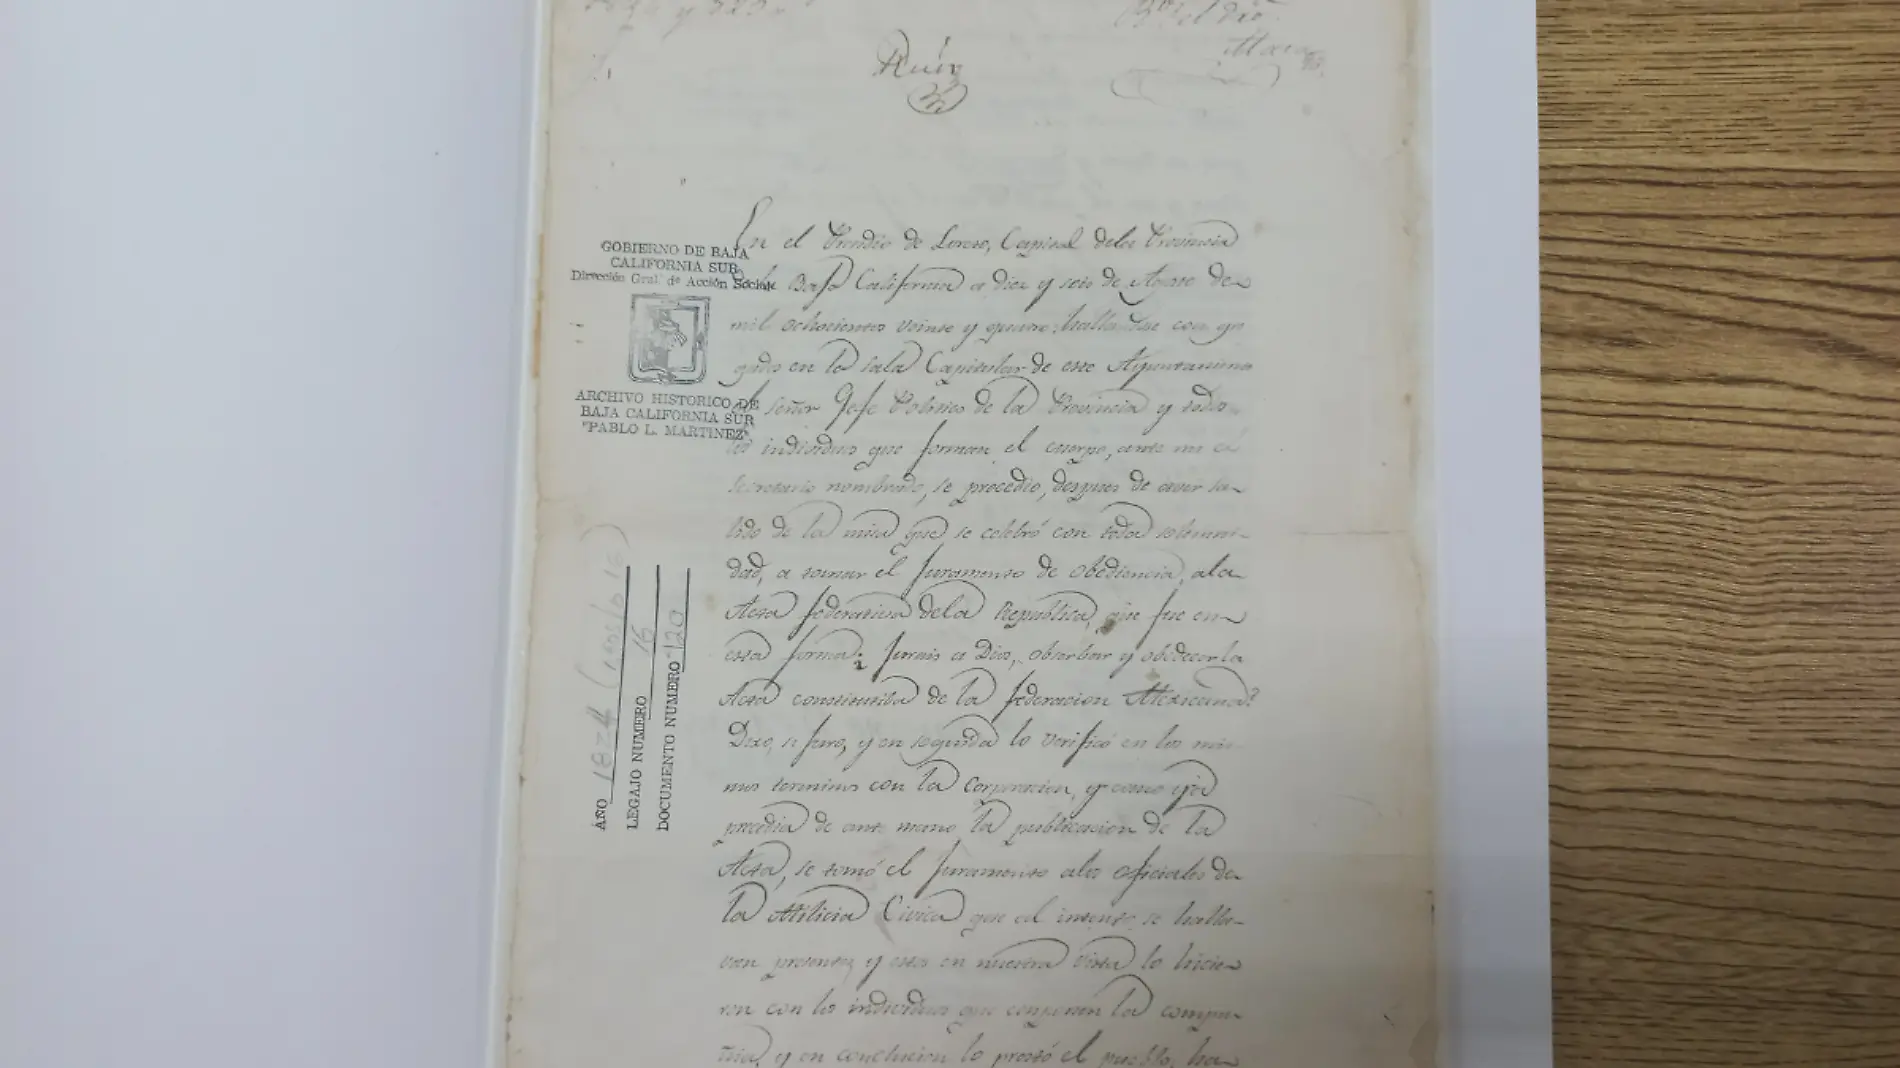 Ruíz
En el Presidio de Loreto, Capital dela Provincia
Baja California a diez y seis de Agosto de
mil ochocientos veinte y quatro: hallandose congre
gado en la sala Capitular de este Ayuntamiento
el señor Gefe Politico de la Provincia y todos
los individuos que forman el cuerpo, ante mi el
secretario nombrado, se procedio, despues de aver sa-
lido de la misa que se celebró con toda solemni-
dad, a tomar el juramento de obediencia, ala
Acta federativa dela Republica, que fue en
esta forma: jurais a Dios, obserbar y obedecer la
Acta constitutiba de la federacion Mexicana?
Dixo, si juro, y en seguida lo verificó en los mis-
mos terminos con la Corporacion, y como ya
precedia de ante mano la publicacion de la
Acta, se tomó el juramento alos oficiales de
la Milicia Civica que al intento se halla-
van presentes y estos en nuestra vista lo hicie
ron con los individuos que componen la compa-
ñia, y en conclucion lo prestó el pueblo, ha
GOBIERNO DE BAJA
CALIFORNIA SUR
Dirección Gral. de Acción Social
ARCHIVO HISTORICO DE
BAJA CALIFORNIA SUR
"PABLO L. MARTINEZ"
AÑO 1824
LEGAJO NUMERO 16
DOCUMENTO NUMERO 120